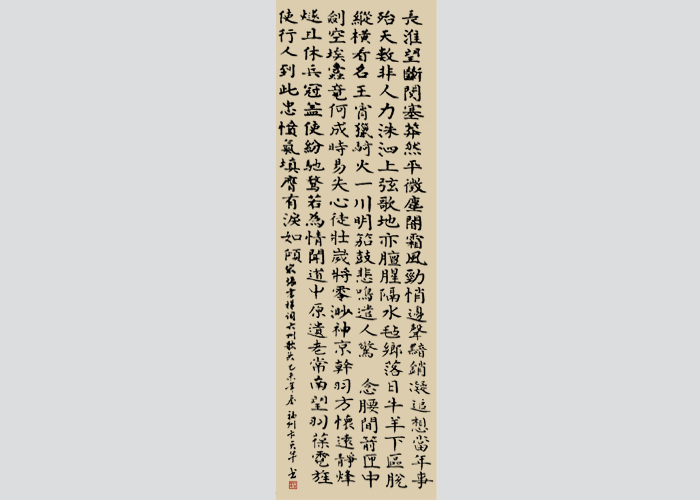 長淮望斷関塞莽然平徵塵闇霜風勁悄邊聲黯銷凝追想當年事
殆天數非人力洙泗上弦歌地亦膻腥隔水毡鄉落日牛羊下區脫
縱橫看名王宵獵騎火一川明笳鼓悲鳴遣人驚 念腰間箭匣中
劍空埃蠹竟何成時易失心徒壯歲將零渺神京幹羽方懷遠靜烽
燧且休兵冠蓋使紛馳騖若為情聞道中原遺老常南望羽葆霓旌
使行人到此忠憤氣填膺有淚如傾 宋張孝祥詞六州歌头乙未年春